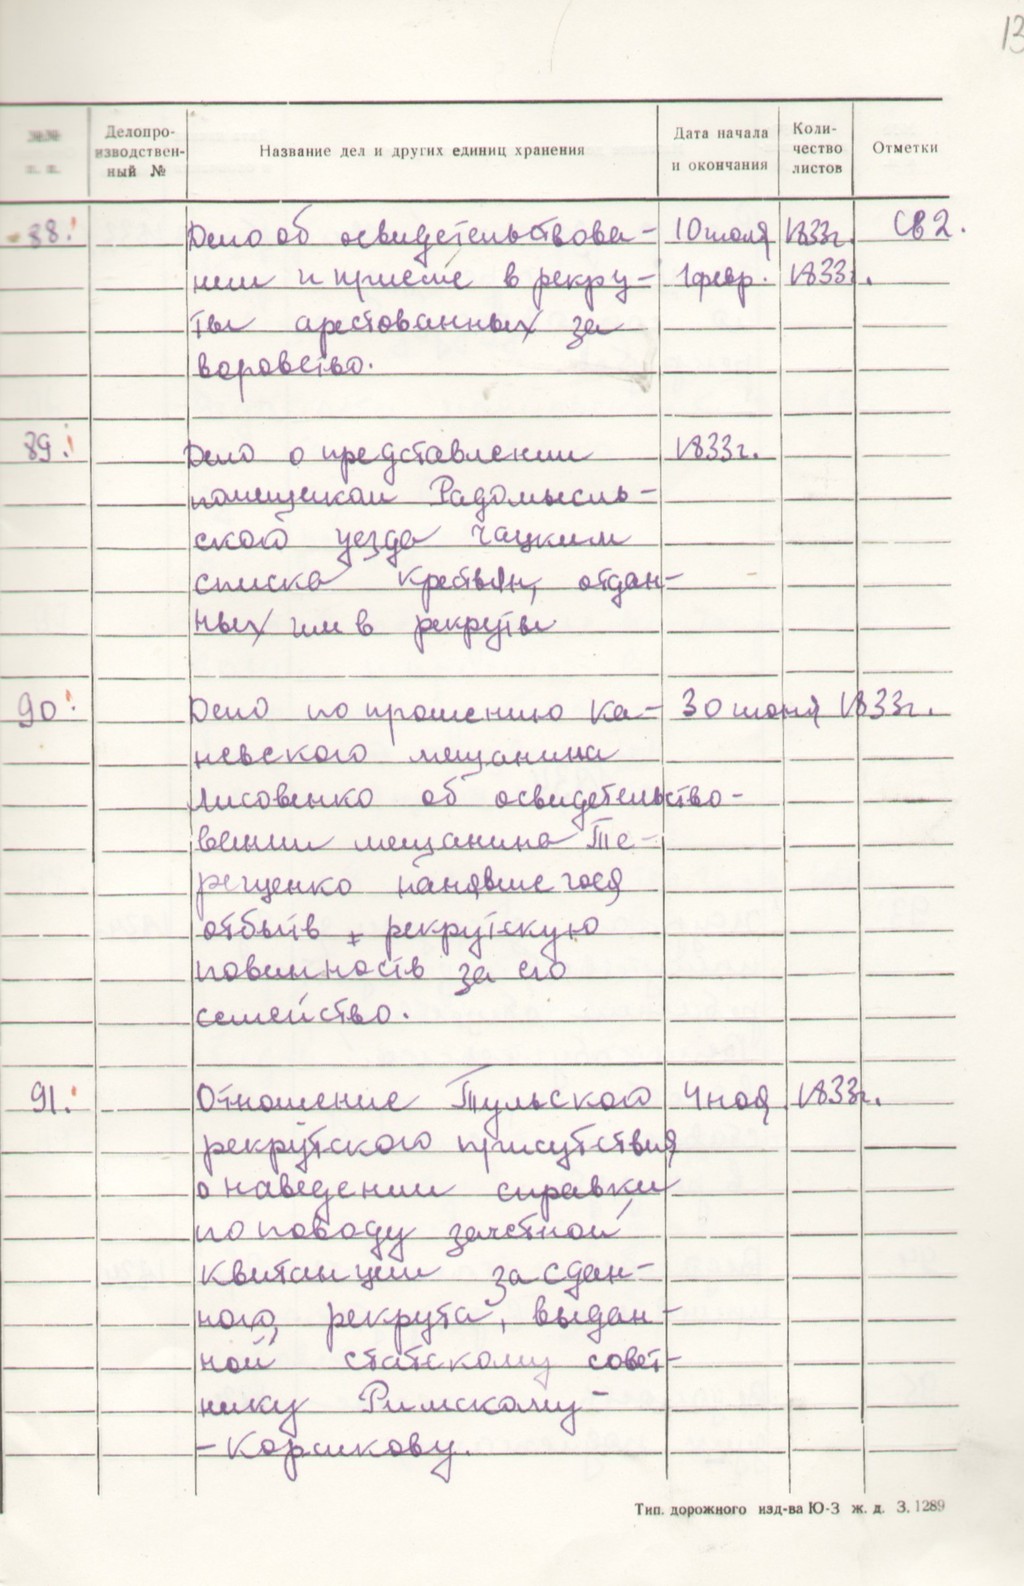 13
Делопро-
изводствен-
ный №
Название дел и других единиц хранения
Дата начала
и окончания
Коли-
чество
листов
Отметки
88. Дело об освидетельствова- 10 июля 1833г. св 2.
нии и приеме в рекру- 1 февр. 1833г.
ты арестованных за
воровство.
89. Дело о представлении 1833г.
помещиком Радомысль-
ского уезда Чацким
списка крестьян, отдан-
ных им в рекруты
90. Дело по прошению Ка- 30 июня 1833г.
невского мещанина
Лисовенко об освидетельство-
вании мещанина Те-
рещенко нанявшегося
отбыть рекрутскую
повинность за его
семейство.
91. Отношение Тульского 4 ноя. 1833г.
рекрутского присутствия
о наведении справки
по поводу зачетной
квитанции за сдан-
ного рекрута, выдан-
ной статскому совет-
нику Римскому-
-Корсикову.
Тип. дорожного изд-ва Ю-З ж. д. З. 1289